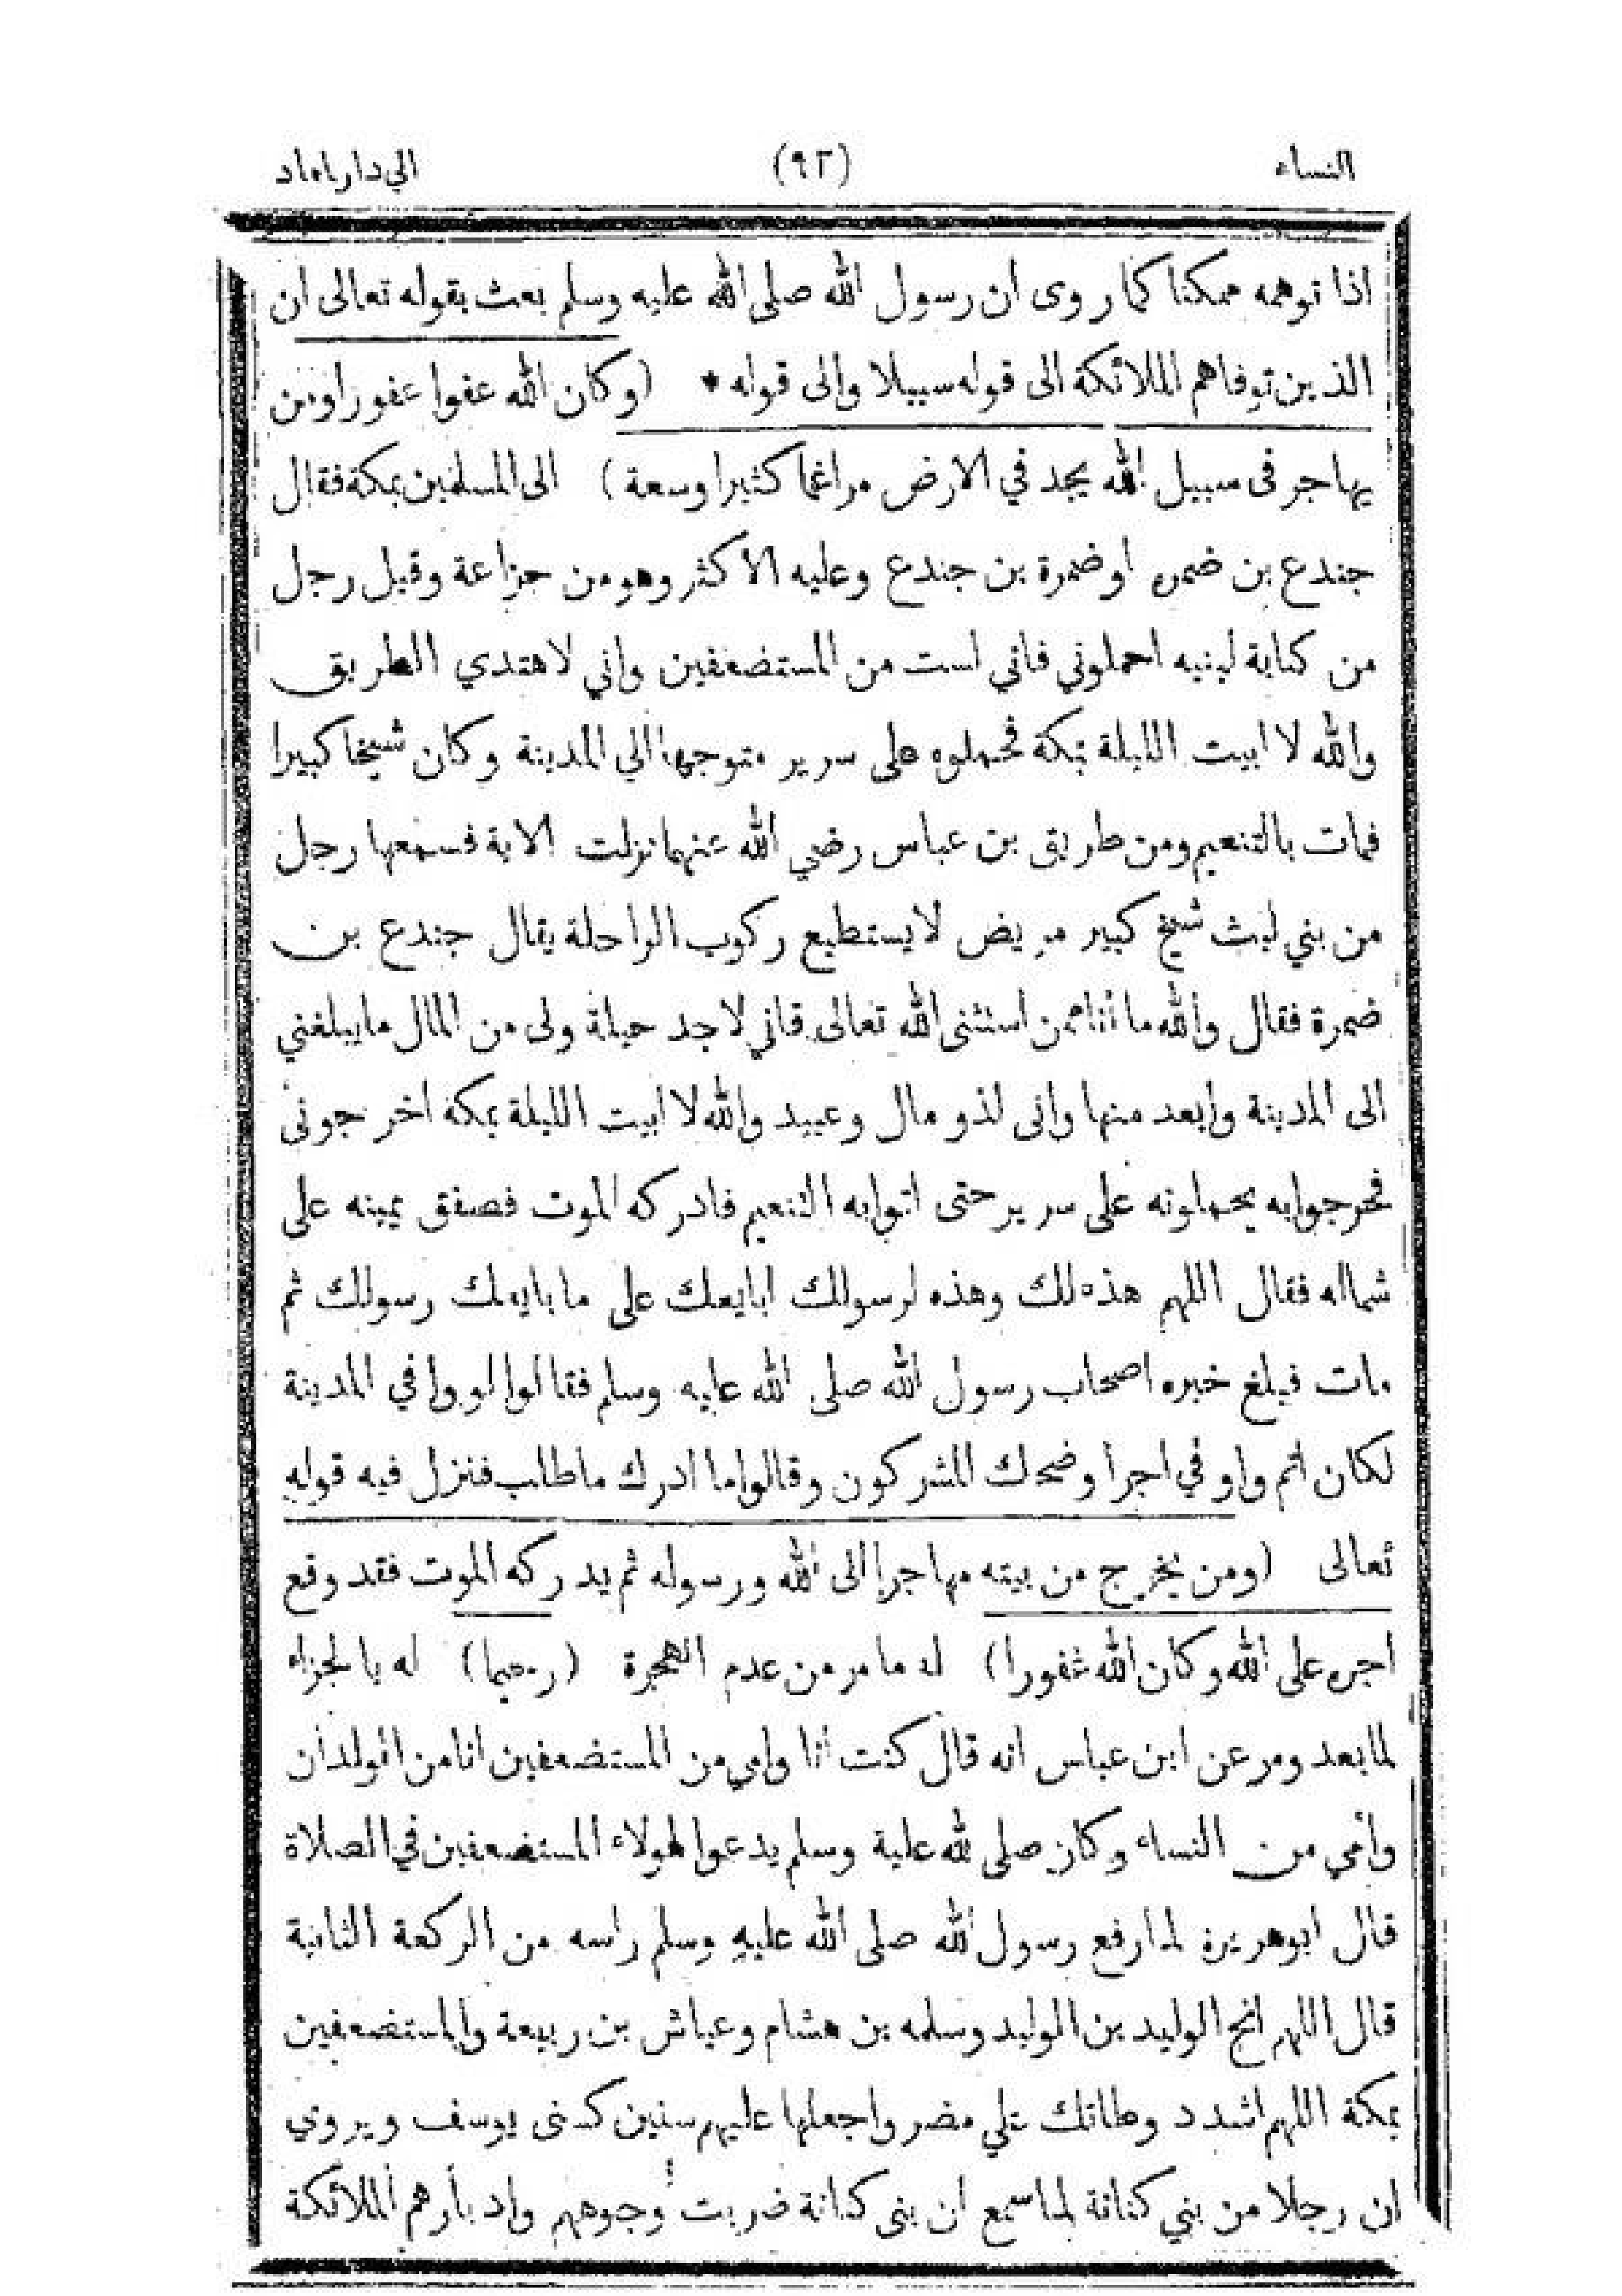 النساء (٩٢) الي دار اماد
اذا توهمه ممكنا كما روى ان رسول الله صلى الله عليه وسلم بعث بقوله تعالى ان
الذين توفاهم الملائكة الى قوله سبيلا والى قوله * (وكان الله عفوا غفورا ومن
يهاجر فى سبيل الله يجد في الارض مراغما كثيرا وسعة) الى المسلمين بمكة فقال
جندع بن ضمره او ضمرة بن جندع وعليه الاكثر وهو من خزاعة وقيل رجل
من كنانة لبنيه احملوني فاني لست من المستضعفين واني لاهتدي الطريق
والله لا ابيت الليلة بمكة فحملوه على سرير متوجها الي المدينة وكان شيخا كبيرا
فمات بالتنعيم ومن طريق بن عباس رضي الله عنهما نزلت الاية فسمعها رجل
من بني ليث شيخ كبير مريض لا يستطيع ركوب الراحلة يقال جندع بن
ضمرة فقال والله ما أنا ممن استثنى الله تعالى فاني لاجد حيلة ولى من المال ما يبلغني
الى المدينة وابعد منها وانى لذو مال وعبيد والله لا ابيت الليلة بمكة اخرجونى
فخرجوا به يحملونه على سرير حتى اتوا به التنعيم فادركه الموت فصفق يمينه على
شماله فقال اللهم هذه لك وهذه لرسولك ابايعك على ما بايعك رسولك ثم
مات فبلغ خبره اصحاب رسول الله صلى الله عليه وسلم فقالوا لو وافي المدينة
لكان اتم واوفي اجرا وضحك المشركون وقالوا ما ادرك ما طلب فنزل فيه قوله
تعالى (ومن يخرج من بيته مهاجرا الى الله ورسوله ثم يدركه الموت فقد وقع
اجره على الله وكان الله غفورا) له ما مر من عدم الهجرة (رحيما) له بالجزاء
لما بعد ومر عن ابن عباس انه قال كنت أنا وامي من المستضعفين انا من الولدان
وأمي من النساء وكان صلى لله علية وسلم يدعوا لهولاء المستضعفين في الصلاة
قال ابو هريرة لما رفع رسول لله صلى الله عليه وسلم راسه من الركعة الثانية
قال اللهم انج الوليد بن الوليد وسلمه بن هشام وعياش بن ربيعة والمستضعفين
بمكة اللهم اشدد وطاتك علي مضر واجعلها عليهم سنين كسنى يوسف ويروي
ان رجلا من بني كنانة لما سمع ان بنى كنانة ضربت وجوههم وادبارهم الملائكة